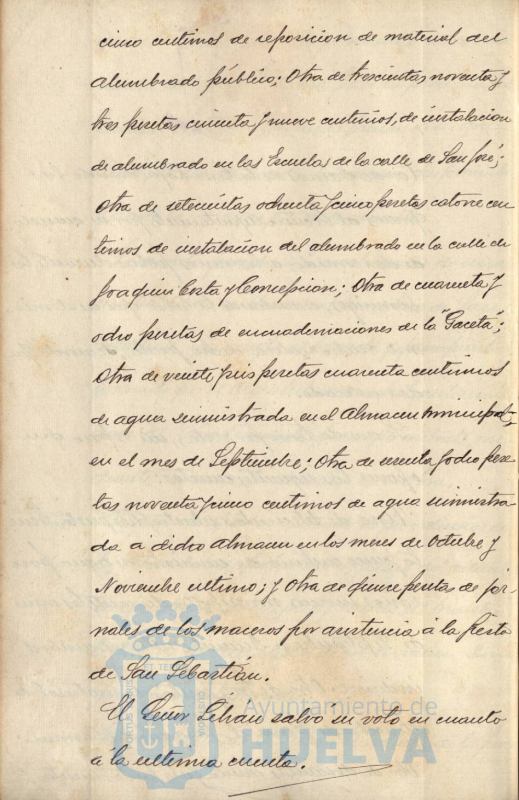 cinco centimos de reposicion de material del
alumbrado público; Otra de trescientas noventa y
tres pesetas cincuenta y nueve centimos, de instalacion
de alumbrado en las Escuelas de la calle de San José;
Otra de setecientas ochenta y cinco pesetas catorce cen
timos de instalacion del alumbrado en la calle de
Joaquin Costa y Concepcion; Otra de cuarenta y
ocho pesetas de encuadernaciones de la "Gaceta";
Otra de veinte y seis pesetas cuarenta centimos
de agua suministrada en el Almacen municipal,
en el mes de Septiembre; Otra de sesenta y ocho pese
tas noventa y cinco centimos de agua suministra
da á dicho Almacen en los meses de Octubre y
Noviembre ultimo; y Otra de quince pesetas de jor
nales de los maceros por asistencia á la fiesta
de San Sebastián.
El Señor salvó su voto en cuanto
á la ultima cuenta.
Ayuntamiento de
HUELVA